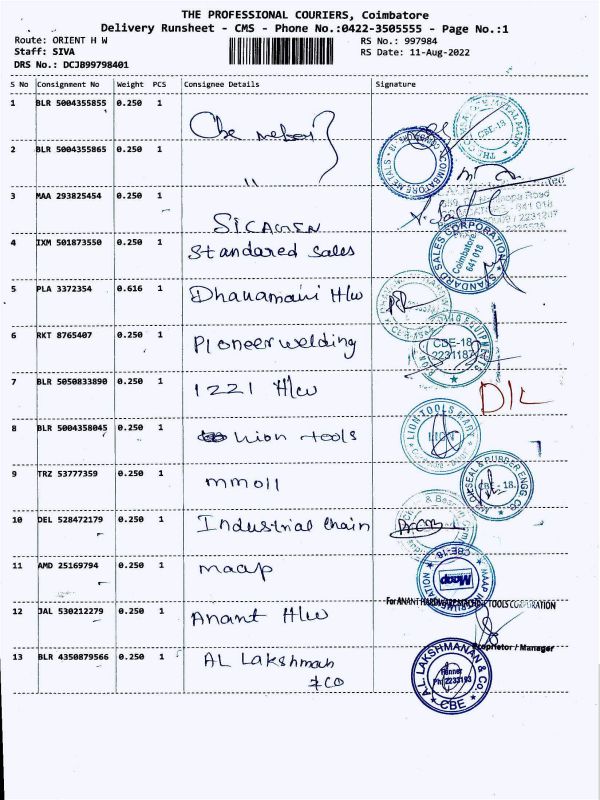 THE PROFESSIONAL COURIERS, Coimbatore
Delivery Runsheet - CMS - Phone No.:0422-3505555 - Page No.:1
Route: ORIENT H W
RS No.: 997984
Staff: SIVA
RS Date: 11-Aug-2022
DRS No.: DCJB99798401
S No Consignment No Weight PCS Consignee Details Signature
1 BLR 5004355855 0.250 1 Cbe
2 BLR 5004355865 0.250 1 "
COIMBATORE METALS
3 MAA 293825454 0.250 1 SICAGEN
4 IXM 501873550 0.250 1 Standared Sales
STANDARD SALES CORPORATION
Coimbatore
641 018
5 PLA 3372354 0.616 1 Dhanamani H/w
6 RKT 8765407 0.250 1 Pioneer welding
CBE-18
2231187
7 BLR 5050833890 0.250 1 1221 H/w
D/L
8 BLR 5004358045 0.250 1 Lion tools
LION TOOLS MART
LION
9 TRZ 53777359 0.250 1 mmoil
OILSEAL & RUBBER ENGG CO.
CBE - 18.
10 DEL 528472179 0.250 1 Industrial chain
11 AMD 25169794 0.250 1 maap
CBE-18
Maap
12 JAL 530212279 0.250 1 Anant H/w
For ANANT HARDWARE MACHINE TOOLS CORPORATION
Proprietor / Manager
13 BLR 4350879566 0.250 1 AL Lakshman
& CO
A.L. LAKSHMANAN & Co.
CBE